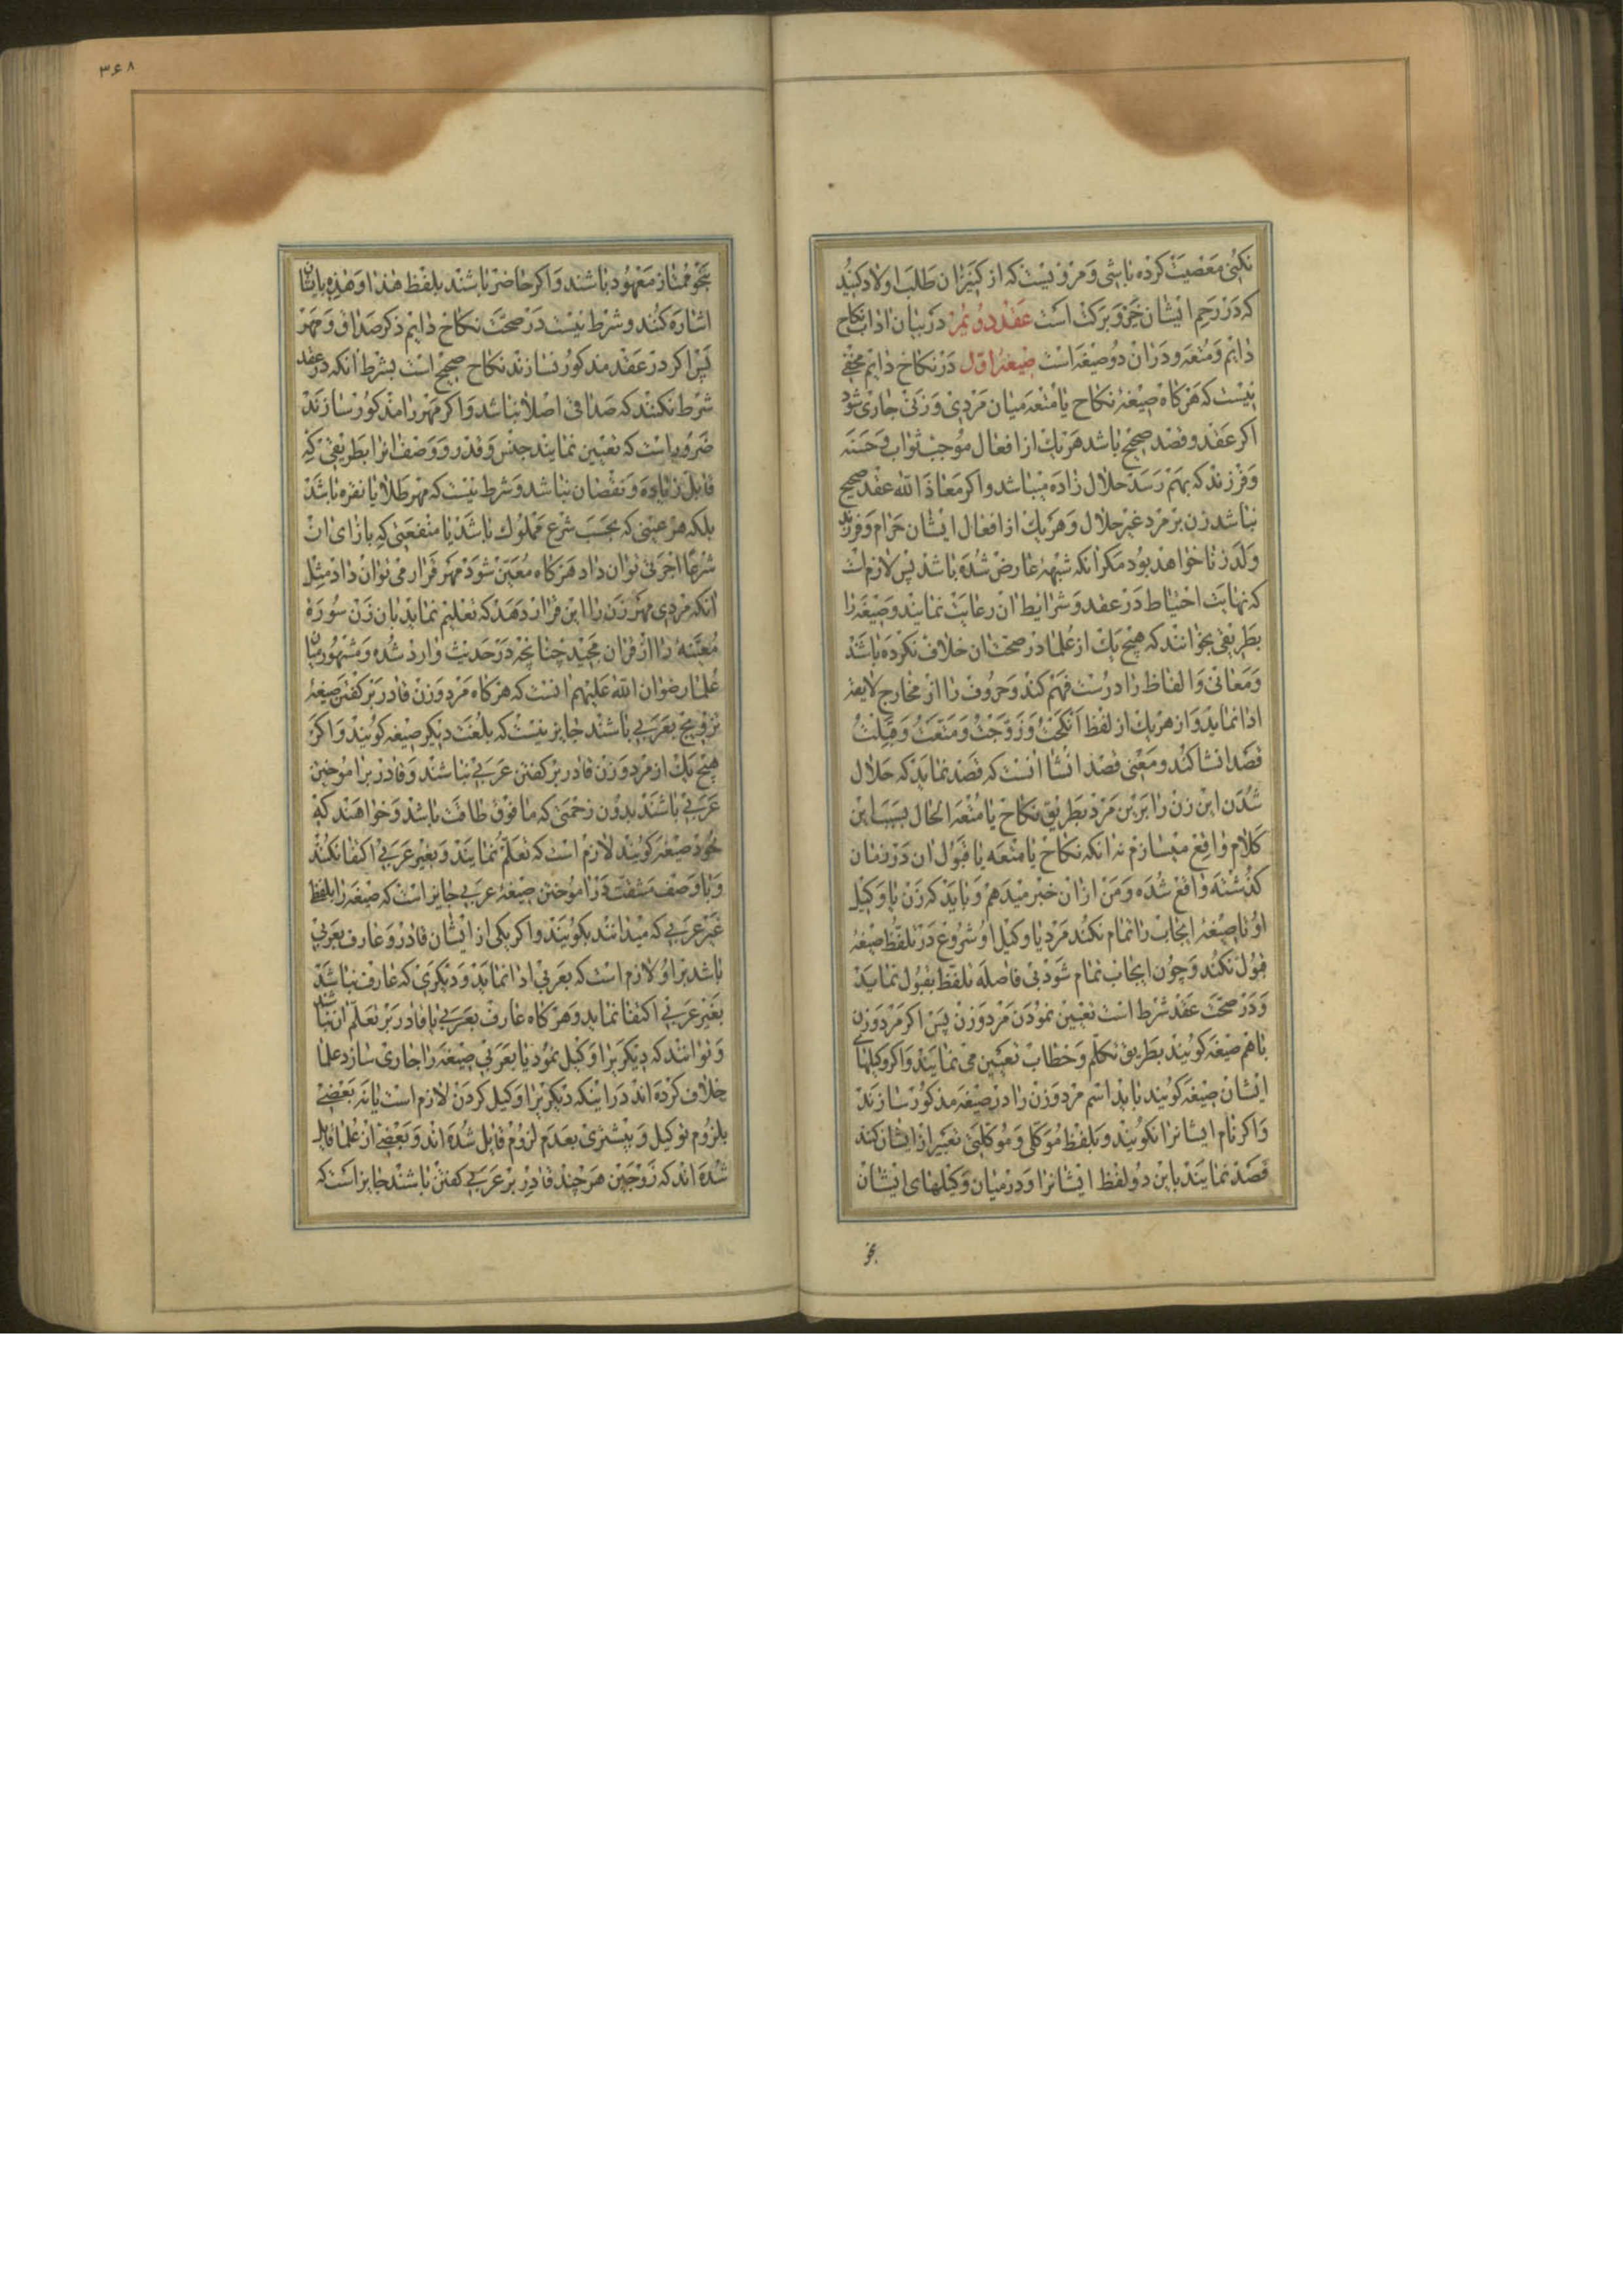 نکنی معصیت کرده باشی و مرویست که از کنیزان طلب اولاد کنید
که در رحم ایشان خیر و برکت است عقد دوئمز در بیان اداب نکاح
دایم و متعه و دران دو صیغه است صیغهٔ اول در نکاح دایم مخفی
نیست که هرکاه صیغهٔ نکاح یا متعه میان مردی و زنی جاری شود
اکر عقد و قصد صحیح باشد هر یک از افعال موجب ثواب و حسنه
و فرزند که بهم رسد حلال زاده میباشد و اکر معاذ الله عقد صحیح
نباشد زن بر مرد غیر حلال و هر یک از افعال ایشان حرام و فرزند
ولد زنا خواهد بود مکر انکه شبههٔ عارض شده باشد پس لازم است
که نهایت احتیاط در عقد و شرایط ان رعایت نمایند و صیغه را
بطریقی بخوانند که هیچ یک از علما در صحت ان خلاف نکرده باشند
و معانی و الفاظ را درست فهم کند و حروف را از مخارج لایقه
ادا نماید و از هر یک از لفظ انکحت و زوجت و متعت و قبلت
قصد انشا کند و معنی قصد انشا انست که قصد نماید که حلال
شدن این زن را بر این مرد بطریق نکاح یا متعه الحال بسبب این
کلام واقع میسازم نه انکه نکاح یا متعه یا قبول ان در زمان
کذشته واقع شده و من ازان خبر میدهم و باید که زن یا وکیل
او تا صیغهٔ ایجاب را تمام نکند مرد یا وکیل او شروع در تلفظ صیغهٔ
قبول نکند و چون ایجاب تمام شود بی فاصله تلفظ بقبول نماید
و در صحت عقد شرط است تعیین نمودن مرد و زن پس اکر مرد و زن
باهم صیغه کویند بطریق تکلم و خطاب تعیین می نمایند و اکر وکیلهای
ایشان صیغه کویند باید اسم مرد و زن را در صیغه مذکور سازند
و اکر نام ایشانرا نکویند و بلفظ موکلی و موکلتی تعبیر از ایشان کنند
قصد نمایند باین دو لفظ ایشانرا و در میان وکیلهای ایشان
بنحو
۳۶۸
بنحو ممتاز معهود باشند و اکر حاضر باشند بلفظ هذا و هذه بایشان
اشاره کنند و شرط نیست در صحت نکاح دایم ذکر صداق و مهر
پس اکر در عقد مذکور نسازند نکاح صحیح است بشرط انکه در عقد
شرط نکنند که صداقی اصلا نباشد و اکر مهر را مذکور سازند
ضروراست که تعیین نمایند جنس و قدر و وصف انرا بطریقی که
قابل زیاده و نقصان نباشد و شرط نیست که مهر طلا یا نقره باشد
بلکه هر عینی که بحسب شرع مملوک باشد یا منفعتی که بازای ان
شرعا اجرتی توان داد هرکاه معین شود مهر قرار می توان داد مثل
انکه مردی مهر زن را این قرار دهد که تعلیم نماید بان زن سورهٔ
معینهٔ را از قران مجید چنانچه در حدیث وارد شده و مشهور میان
علما رضوان الله علیهم انست که هرکاه مرد و زن قادر بر کفتن صیغهٔ
تزویج بعربی باشند جایز نیست که بلغت دیکر صیغه کویند و اکر
هیچ یک از مرد و زن قادر بر کفتن عربی نباشند و قادر بر اموختن
عربی باشند بدون زحمتی که مافوق طاقت باشد و خواهند که
خود صیغه کویند لازم است که تعلم نمایند و بغیر عربی اکتفا نکنند
و با وصف مشقت در اموختن صیغهٔ عربی جایز است که صیغه را بلفظ
غیر عربی که میدانند بکویند و اکر یکی از ایشان قادر و عارف بعربی
باشد بر او لازم است که بعربی ادا نماید و دیکری که عارف نباشد
بغیر عربی اکتفا نماید و هرکاه عارف بعربی یا قادر بر تعلم ان نباشند
و توانند که دیکریرا وکیل نمود تا بعربی صیغه را جاری سازد علما
خلاف کرده اند در اینکه دیکریرا وکیل کردن لازم است یا نه بعضی
بلزوم توکیل و بیشتری بعدم لزوم قایل شده اند و بعضی از علما قایل
شده اند که زوجین هر چند قادر بر عربی کفتن باشند جایز است که